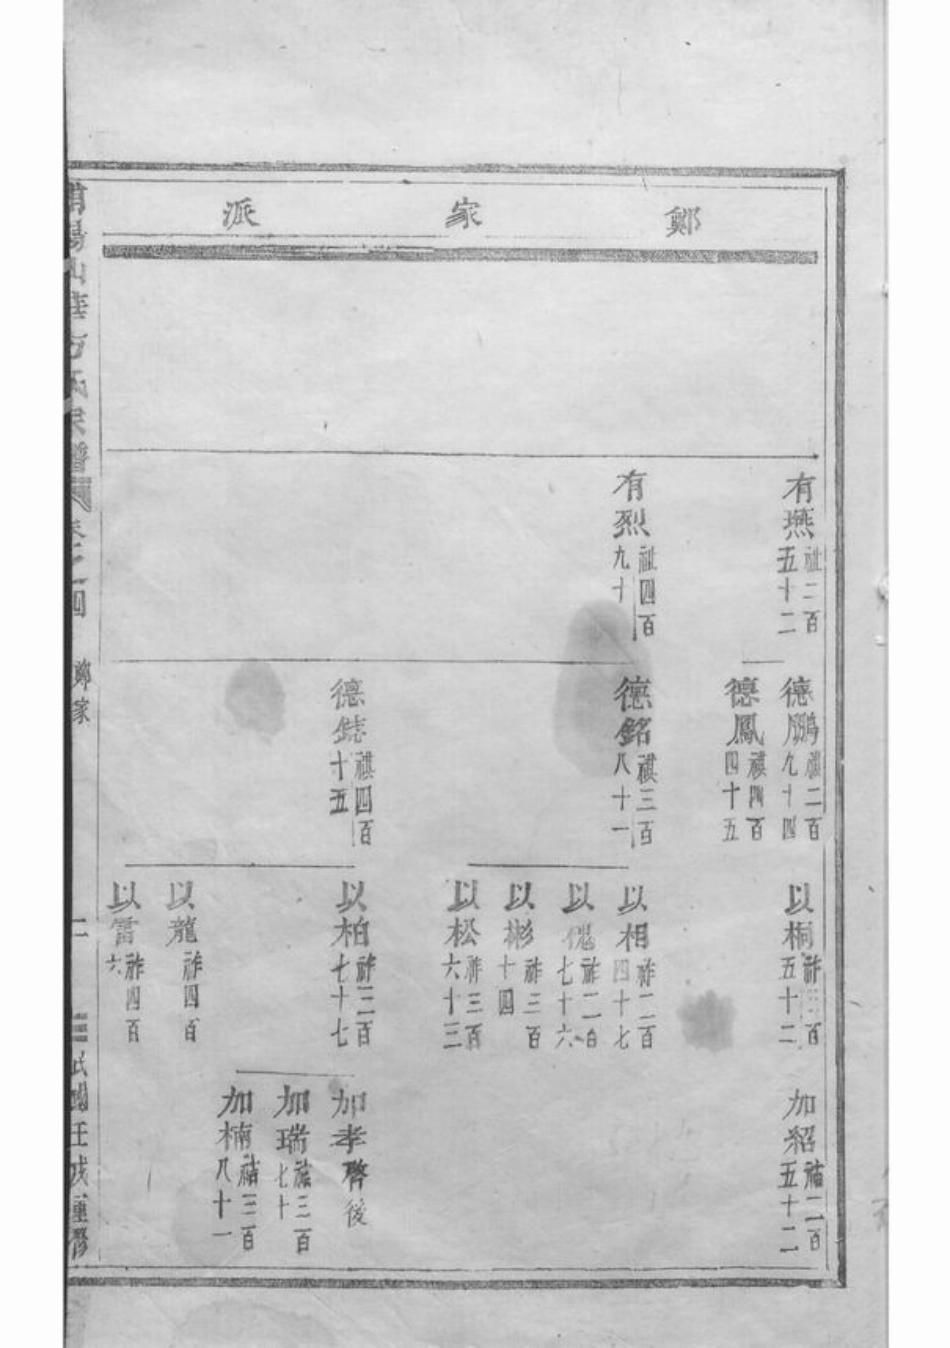 鄭家派
有燕 祉二百五十二
有烈 祉四百九十
德鵬 祺二百九十四
德鳳 祺四百四十五
德銘 祺三百八十一
德鋕 祺四百十五
以桐 祚三百五十二
以相 祚二百四十七
以槐 祚二百七十六
以彬 祚三百十四
以松 祚三百六十三
以柏 祚三百七十七
以龍 祚四百
以雷 祚四百六
加紹 祜二百五十二
加孝 啓後
加瑞 祜三百七十
加楠 祜三百八十一
莆陽山
方氏宗譜
卷之四
鄭家
二
民國壬戌重修